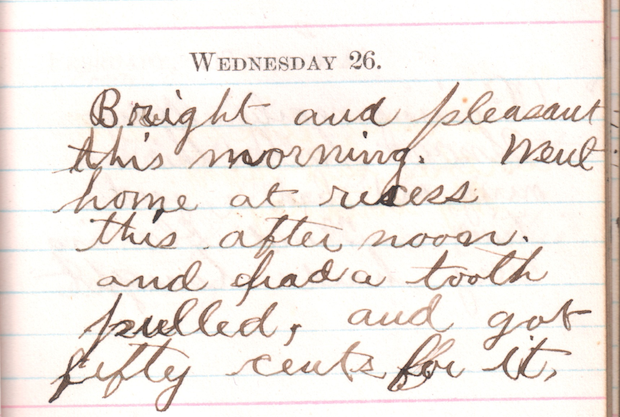 WEDNESDAY 26.
Bright and pleasant
this morning. Went
home at recess
this after noon.
and had a tooth
pulled, and got
fifty cents for it.